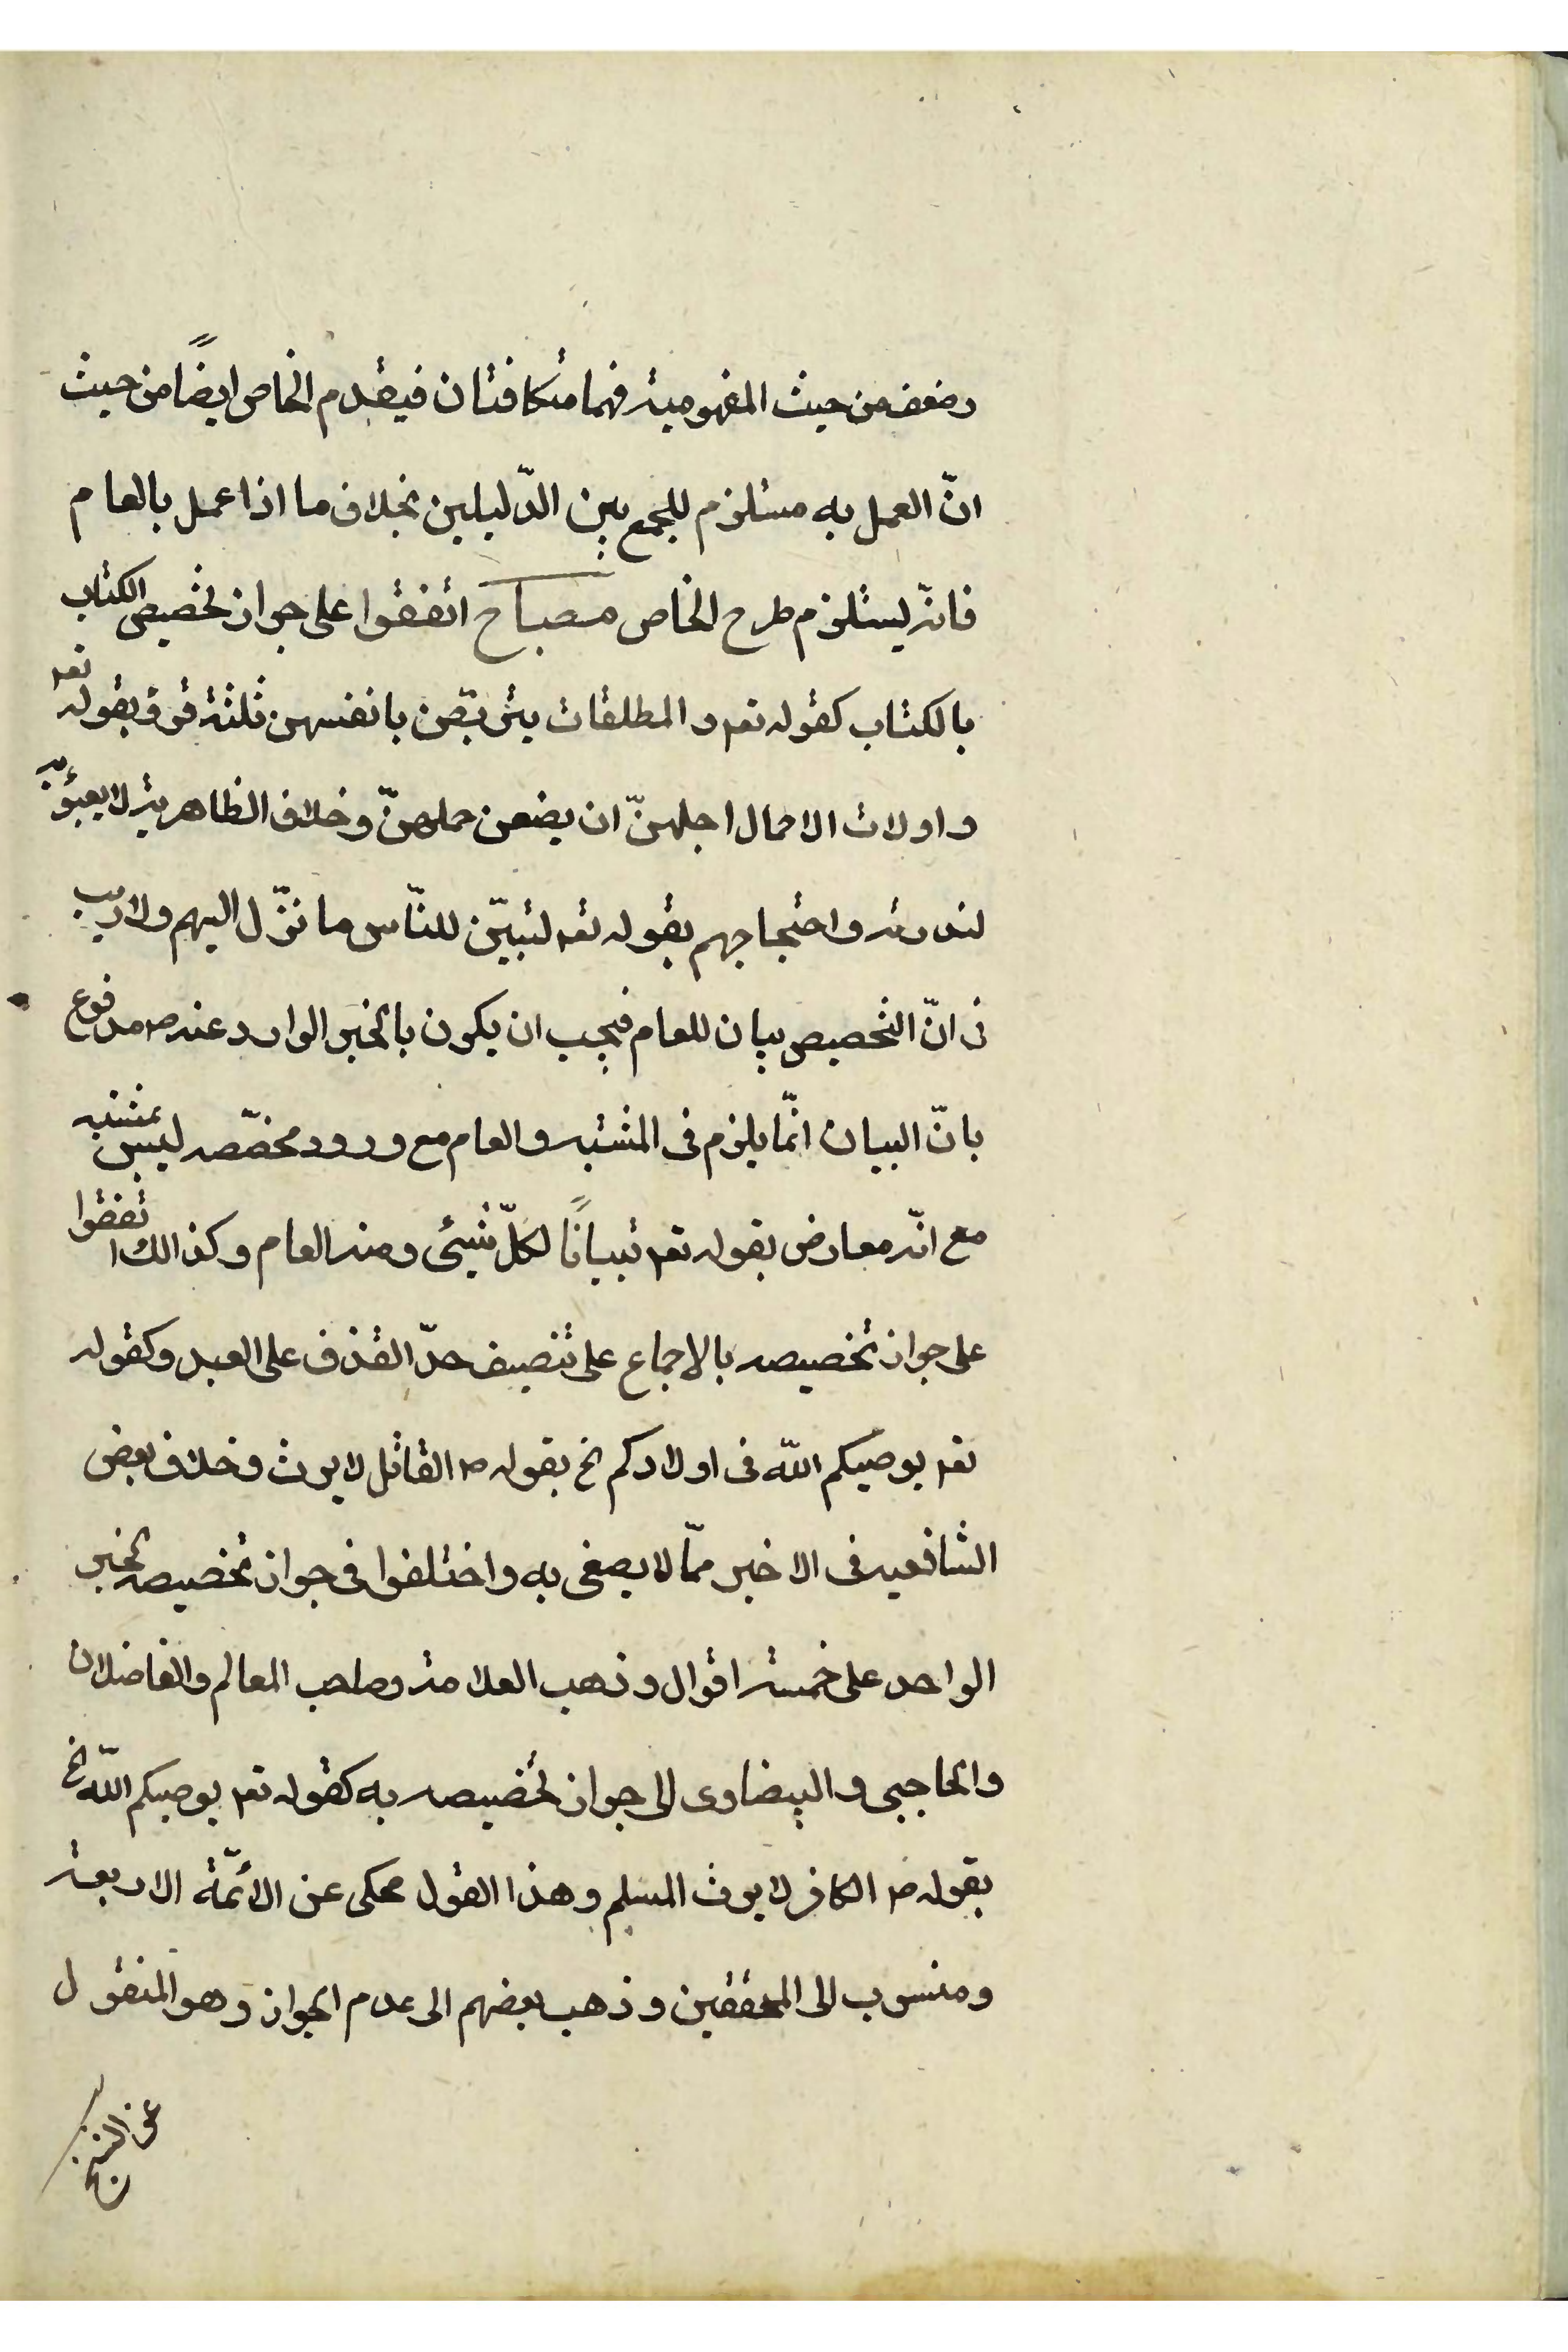 وضعف من حيث المفهومية فهما متكافئتان فيقدم الخاص ايضًا من حيث
انّ العمل به مستلزم للجمع بين الدّليلين بخلاف ما اذا عمل بالعام
فانّه يستلزم طرح الخاص مصباح اتفقوا على جواز تخصيص الكتاب
بالكتاب كقوله تعم و المطلقات يتربّصن بانفسهن ثلثة قروء بقوله تعم
و اولات الاحمال اجلهنّ ان يضعن حملهنّ و خلاف الظاهرية لا يعبؤ به
لندرته و احتجاجهم بقوله تعم لتبيّن للنّاس ما نزّل اليهم ولا ريب
فى انّ التخصيص بيان للعام فيجب ان يكون بالخبر الوارد عنه ص مدفوع
بانّ البيان انّما يلزم فى المشتبه و العام مع ورود مخصّصه ليس بمشتبه
مع انّه معارض بقوله تعم تبيانًا لكلّ شيئ و منه العام و كذالك اتفقوا
على جواز تخصيصه بالاجماع على تنصيف حدّ القذف على العبد و كقوله
تعم يوصيكم اللّه فى اولادكم الخ بقوله ص القاتل لا يرث و خلاف بعض
الشافعيه فى الاخير ممّا لا يصغى به و اختلفوا فى جواز تخصيصه بخبر
الواحد على خمسة اقوال و ذهب العلامة و صاحب المعالم و الفاضلان
و الحاجبى و البيضاوى الى جواز تخصيصه به كقوله تعم يوصيكم اللّه الخ
بقوله ص الكافر لا يرث المسلم و هذا القول محكى عن الأئمّة الاربعة
و منسوب الى المحققين و ذهب بعضهم الى عدم الجواز و هو المنقول
عن الشيخ